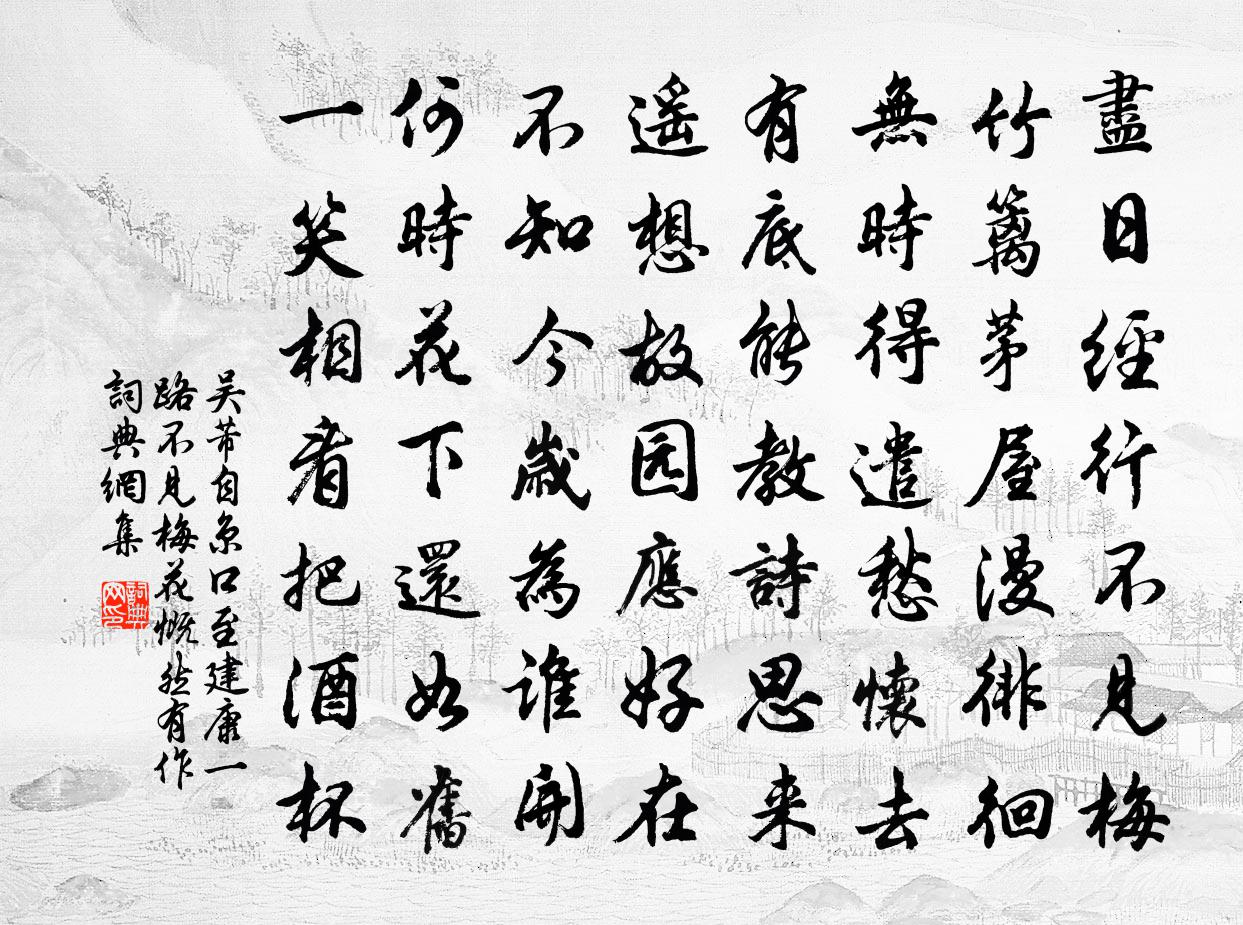 盡日經行不見梅
竹篱茅屋漫徘徊
無時得遣愁懷去
有底能教詩思来
遥想故园應好在
不知今歲為誰開
何時花下還如舊
一笑相看把酒杯
吴芾自京口至建康一
路不見梅花慨然有作
詞典網集
詞典
网印